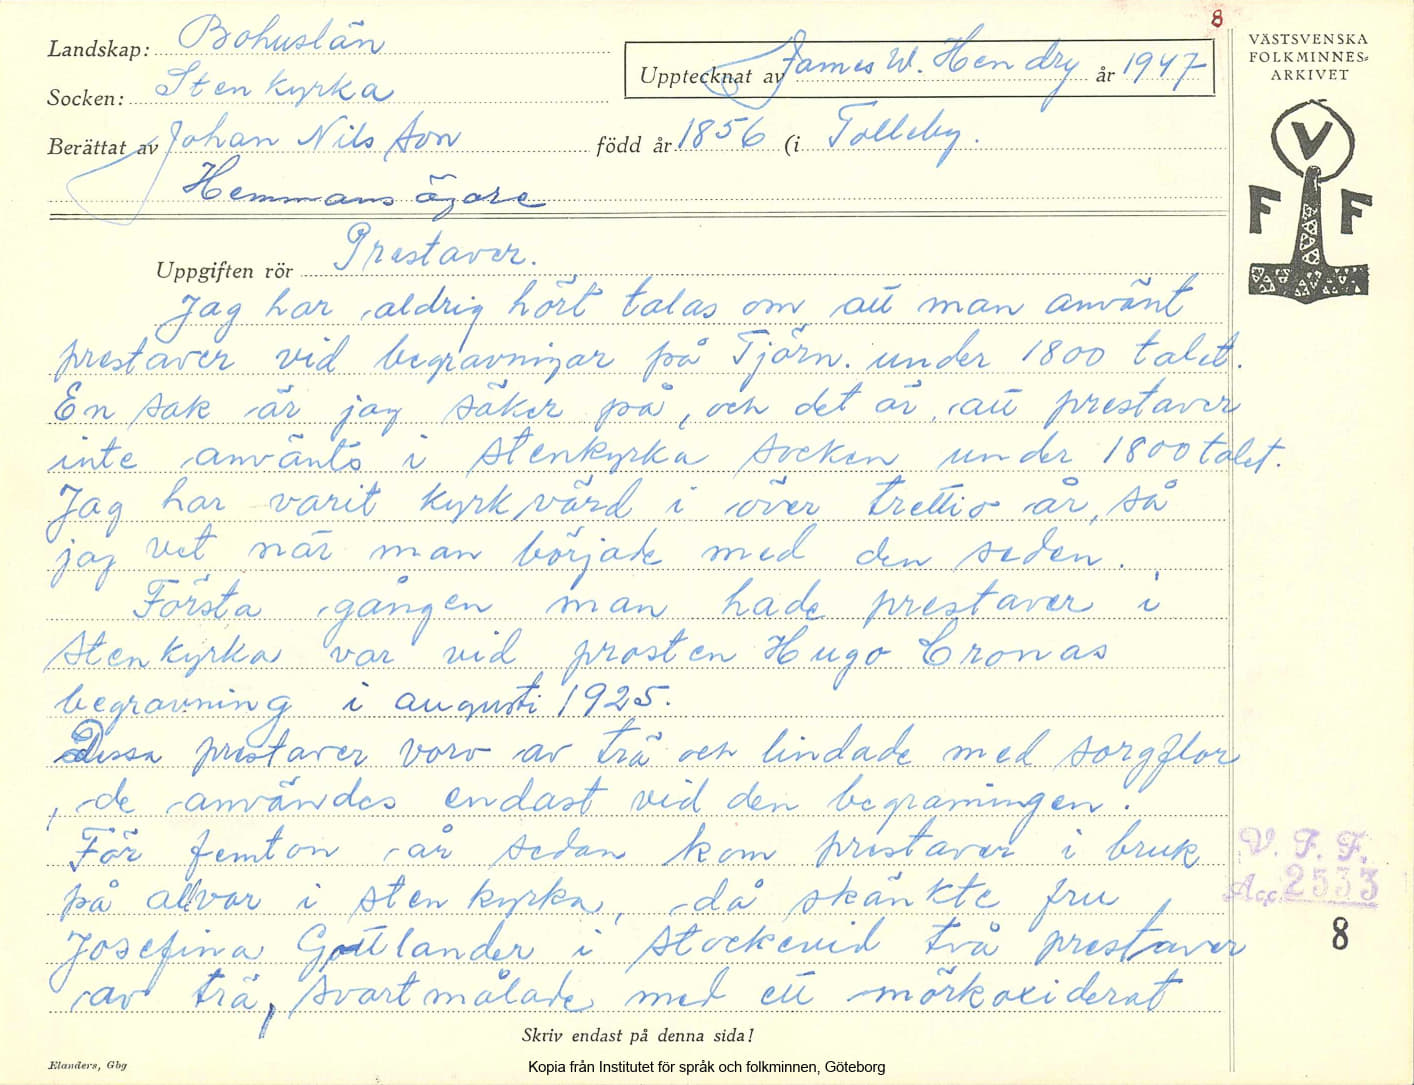 8
Landskap: Bohuslän
Socken: Stenkyrka
Upptecknat av James W. Hendry år 1947
Berättat av Johan Nilsson född år 1856 (i Tolleby.
Hemmansägare
VÄSTSVENSKA
FOLKMINNES-
ARKIVET
V
F F
Uppgiften rör Prestaver.
Jag har aldrig hört talas om att man använt
prestaver vid begravningar på Tjörn. under 1800 talet.
En sak är jag säker på, och det är, att prestaver
inte använts i Stenkyrka socken under 1800 talet.
Jag har varit kyrkvärd i över trettio år, så
jag vet när man började med den seden.
Första gången man hade prestaver i
Stenkyrka var vid prosten Hugo Cronas
begravning i augusti 1925.
Dessa prestaver voro av trä och lindade med sorgflor
, de användes endast vid den begravningen.
För femton år sedan kom prestaver i bruk
på allvar i Stenkyrka, då skänkte fru
Josefina Göttlander i Stockevid två prestaver
av trä, svartmålade med ett mörkoxiderat
V. F. F.
Acc. 2533
8
Skriv endast på denna sida!
Elanders, Gbg
Kopia från Institutet för språk och folkminnen, Göteborg